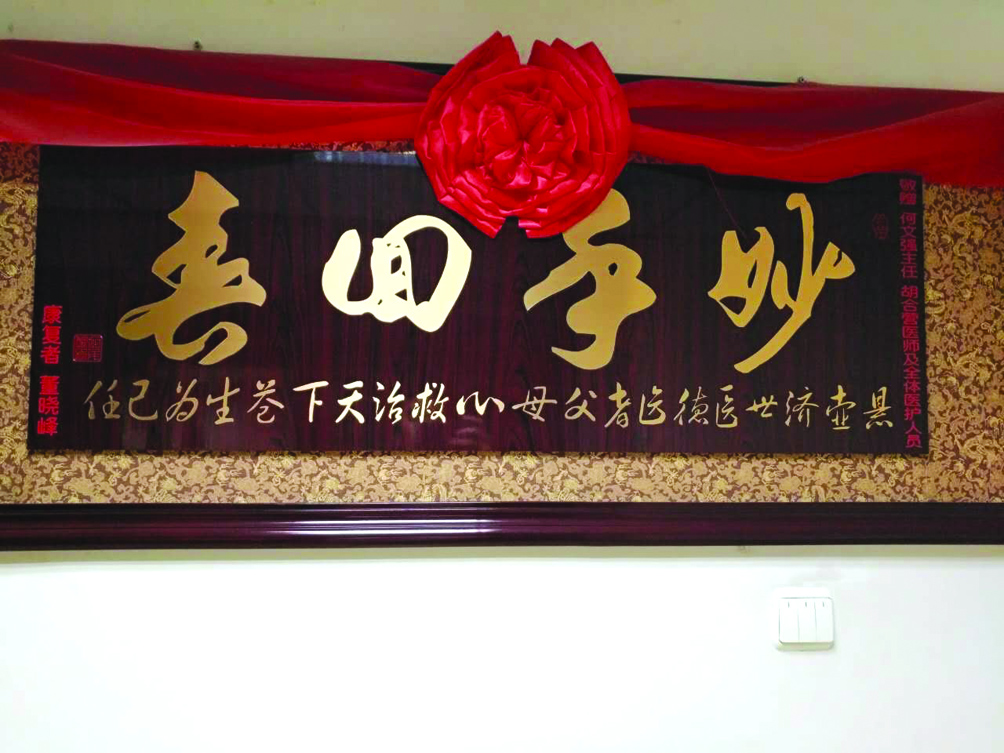 敬赠 何文强主任 胡合医师及全体医护人员
妙手回春
悬壶济世医德医者父母心救治天下苍生为己任
康复者 董晓峰